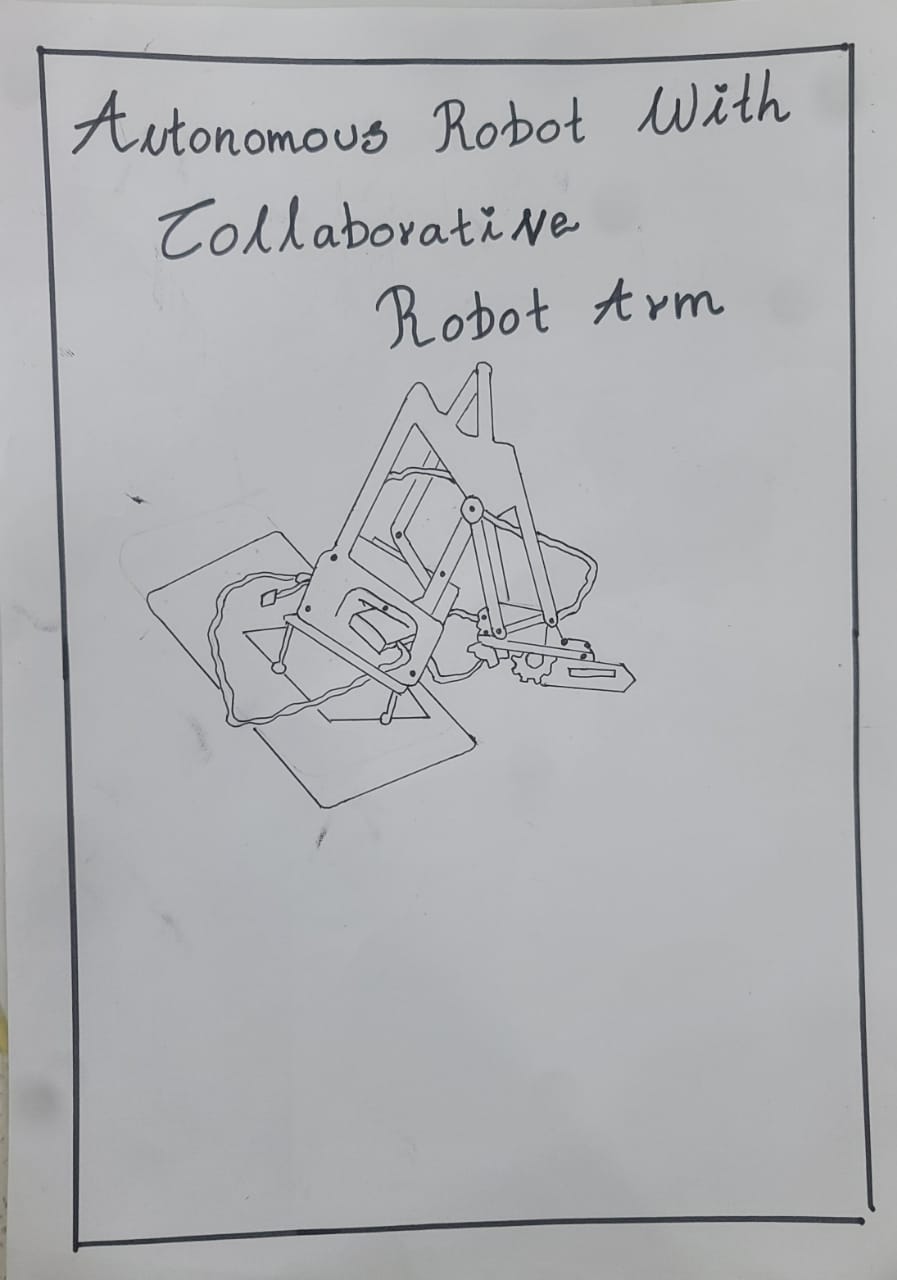 Autonomous Robot With
Collaborative
Robot Arm